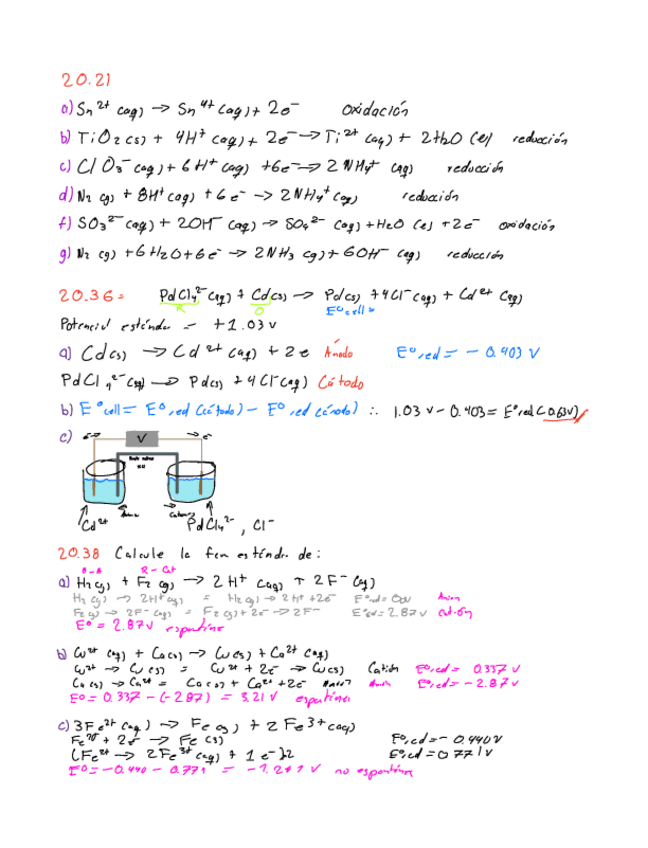 20.21
a) Sn²⁺ (aq) → Sn⁴⁺ (aq) + 2e⁻ oxidación
b) TiO₂ (s) + 4H⁺ (aq) + 2e⁻ → Ti²⁺ (aq) + 2H₂O (l) reducción
c) ClO₃⁻ (aq) + 6H⁺ (aq) + 6e⁻ → 2NH₄⁺ (aq) reducción
d) N₂ (g) + 8H⁺ (aq) + 6e⁻ → 2NH₄⁺ (aq) reducción
f) SO₃²⁻ (aq) + 2OH⁻ (aq) → SO₄²⁻ (aq) + H₂O (l) + 2e⁻ oxidación
g) N₂ (g) + 6H₂O + 6e⁻ → 2NH₃ (g) + 6OH⁻ (aq) reducción
20.36= PdCl₄²⁻ (aq) + Cd (s) → Pd (s) + 4Cl⁻ (aq) + Cd²⁺ (aq)
R O E°cell=
Potencial estándar = +1.03 v
a) Cd (s) → Cd²⁺ (aq) + 2e Ánodo E°red = -0.403 V
PdCl₄²⁻ (aq) → Pd (s) + 4Cl⁻ (aq) Cátodo
b) E°cell = E°red (cátodo) - E°red (ánodo) ∴ 1.03 v - 0.403 = E°red (0.63v)
c) e⁻ V e⁻
Cd²⁺ PdCl₄²⁻, Cl⁻
20.38 Calcule la fem estándar de:
R-Cat
a) H₂ (g) + F₂ (g) → 2H⁺ (aq) + 2F⁻ (aq)
H₂ (g) → 2H⁺ (aq) = H₂ (g) → 2H⁺ + 2e⁻ E°red = 0.0v
F₂ (g) → 2F⁻ (aq) = F₂ (g) + 2e⁻ → 2F⁻ E°red = 2.87 v
E° = 2.87 v
b) Cu²⁺ (aq) + Ca (s) → Cu (s) + Ca²⁺ (aq)
Cu²⁺ → Cu (s) = Cu²⁺ + 2e⁻ → Cu (s) E°red = 0.337 v
Ca (s) → Ca²⁺ = Ca (s) → Ca²⁺ + 2e⁻ E°red = -2.87 v
E° = 0.337 - (-2.87) = 3.21 v
c) 3Fe²⁺ (aq) → Fe (s) + 2Fe³⁺ (aq)
Fe²⁺ + 2e⁻ → Fe (s) E°red = -0.440 v
(Fe²⁺ → 2Fe³⁺ (aq) + 1e⁻)2 E°red = 0.771 v
E° = -0.440 - 0.771 = -1.211 v